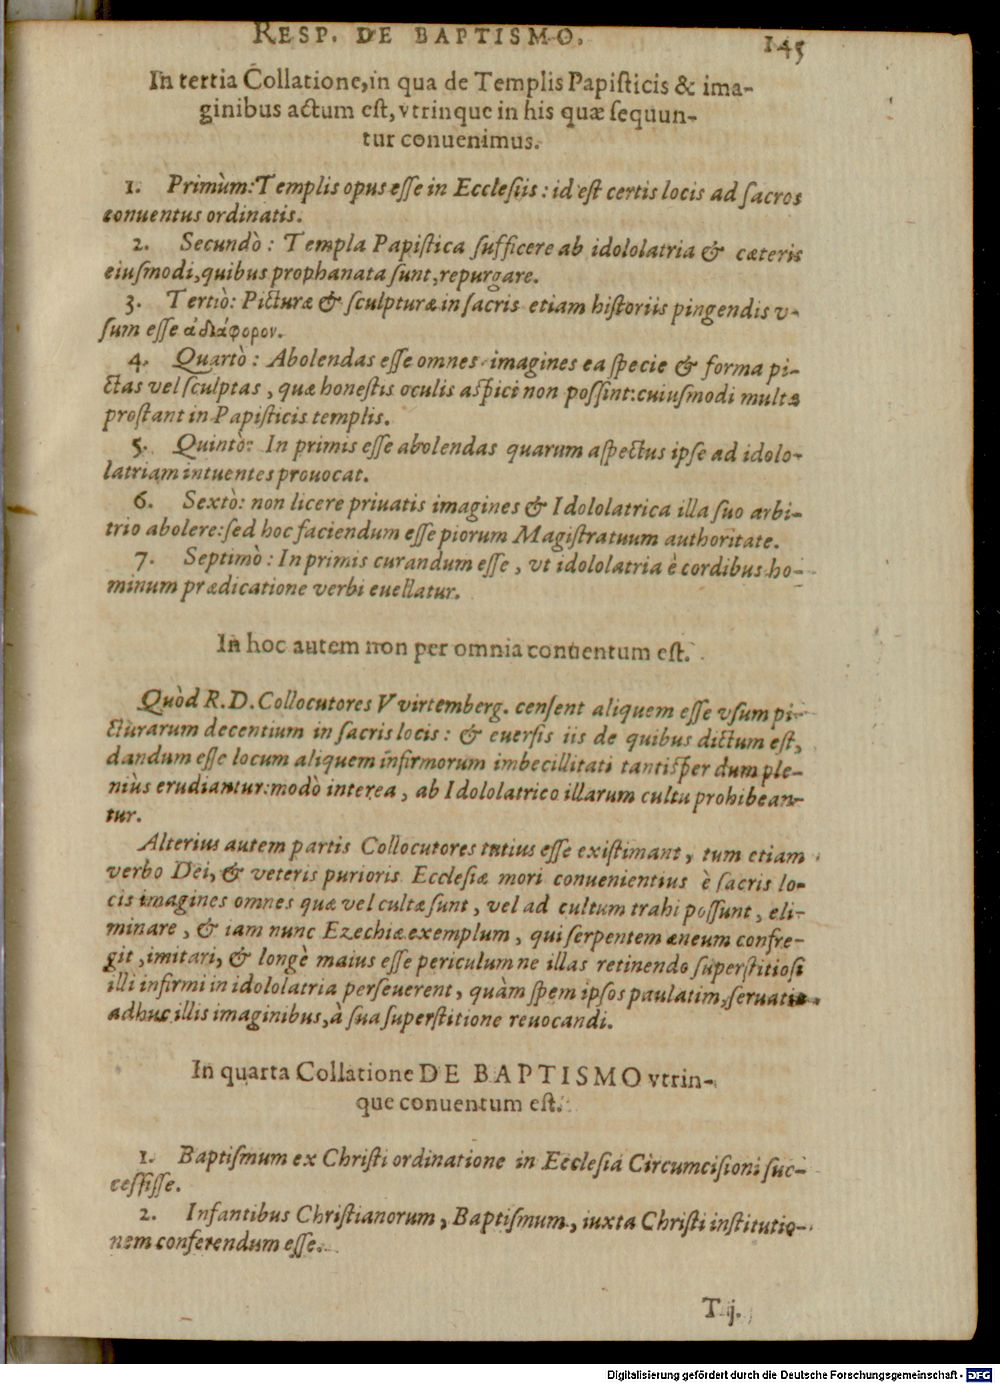 RESP. DE BAPTISMO. 145
In tertia Collatione, in qua de Templis Papisticis & ima-
ginibus actum est, vtrinque in his quæ sequun-
tur conuenimus.
1. Primùm: Templis opus esse in Ecclesiis: id est certis locis ad sacros
conuentus ordinatis.
2. Secundò: Templa Papistica sufficere ab idololatria & cæteris
eiusmodi, quibus prophanata sunt, repurgare.
3. Tertiò: Picturæ & sculpturæ in sacris etiam historiis pingendis v-
sum esse ἀδιάφορον.
4. Quartò: Abolendas esse omnes imagines ea specie & forma pi-
ctas vel sculptas, quæ honestis oculis aspici non possint: cuiusmodi multæ
prostant in Papisticis templis.
5. Quintò: In primis esse abolendas quarum aspectus ipse ad idolo-
latriam intuentes prouocat.
6. Sextò: non licere priuatis imagines & Idololatrica illa suo arbi-
trio abolere: sed hoc faciendum esse piorum Magistratuum authoritate.
7. Septimò: In primis curandum esse, vt idololatria è cordibus ho-
minum prædicatione verbi euellatur.
In hoc autem non per omnia conuentum est.
Quòd R. D. Collocutores VVirtemberg. censent aliquem esse vsum pi-
cturarum decentium in sacris locis: & euersis iis de quibus dictum est,
dandum esse locum aliquem infirmorum imbecillitati tantisper dum ple-
niùs erudiantur: modò interea, ab Idololatrico illarum cultu prohibean-
tur.
Alterius autem partis Collocutores tutius esse existimant, tum etiam
verbo Dei, & veteris purioris Ecclesiæ mori conuenientius è sacris lo-
cis imagines omnes quæ vel cultæ sunt, vel ad cultum trahi possunt, eli-
minare, & iam nunc Ezechiæ exemplum, qui serpentem æneum confre-
git, imitari, & longè maius esse periculum ne illas retinendo superstitiosi
illi infirmi in idololatria perseuerent, quàm spem ipsos paulatim, seruatis
adhuc illis imaginibus, à sua superstitione reuocandi.
In quarta Collatione DE BAPTISMO vtrin-
que conuentum est.
1. Baptismum ex Christi ordinatione in Ecclesia Circumcisioni suc-
cessisse.
2. Infantibus Christianorum, Baptismum, iuxta Christi institutio-
nem conferendum esse.
T ij.
Digitalisierung gefördert durch die Deutsche Forschungsgemeinschaft - DFG